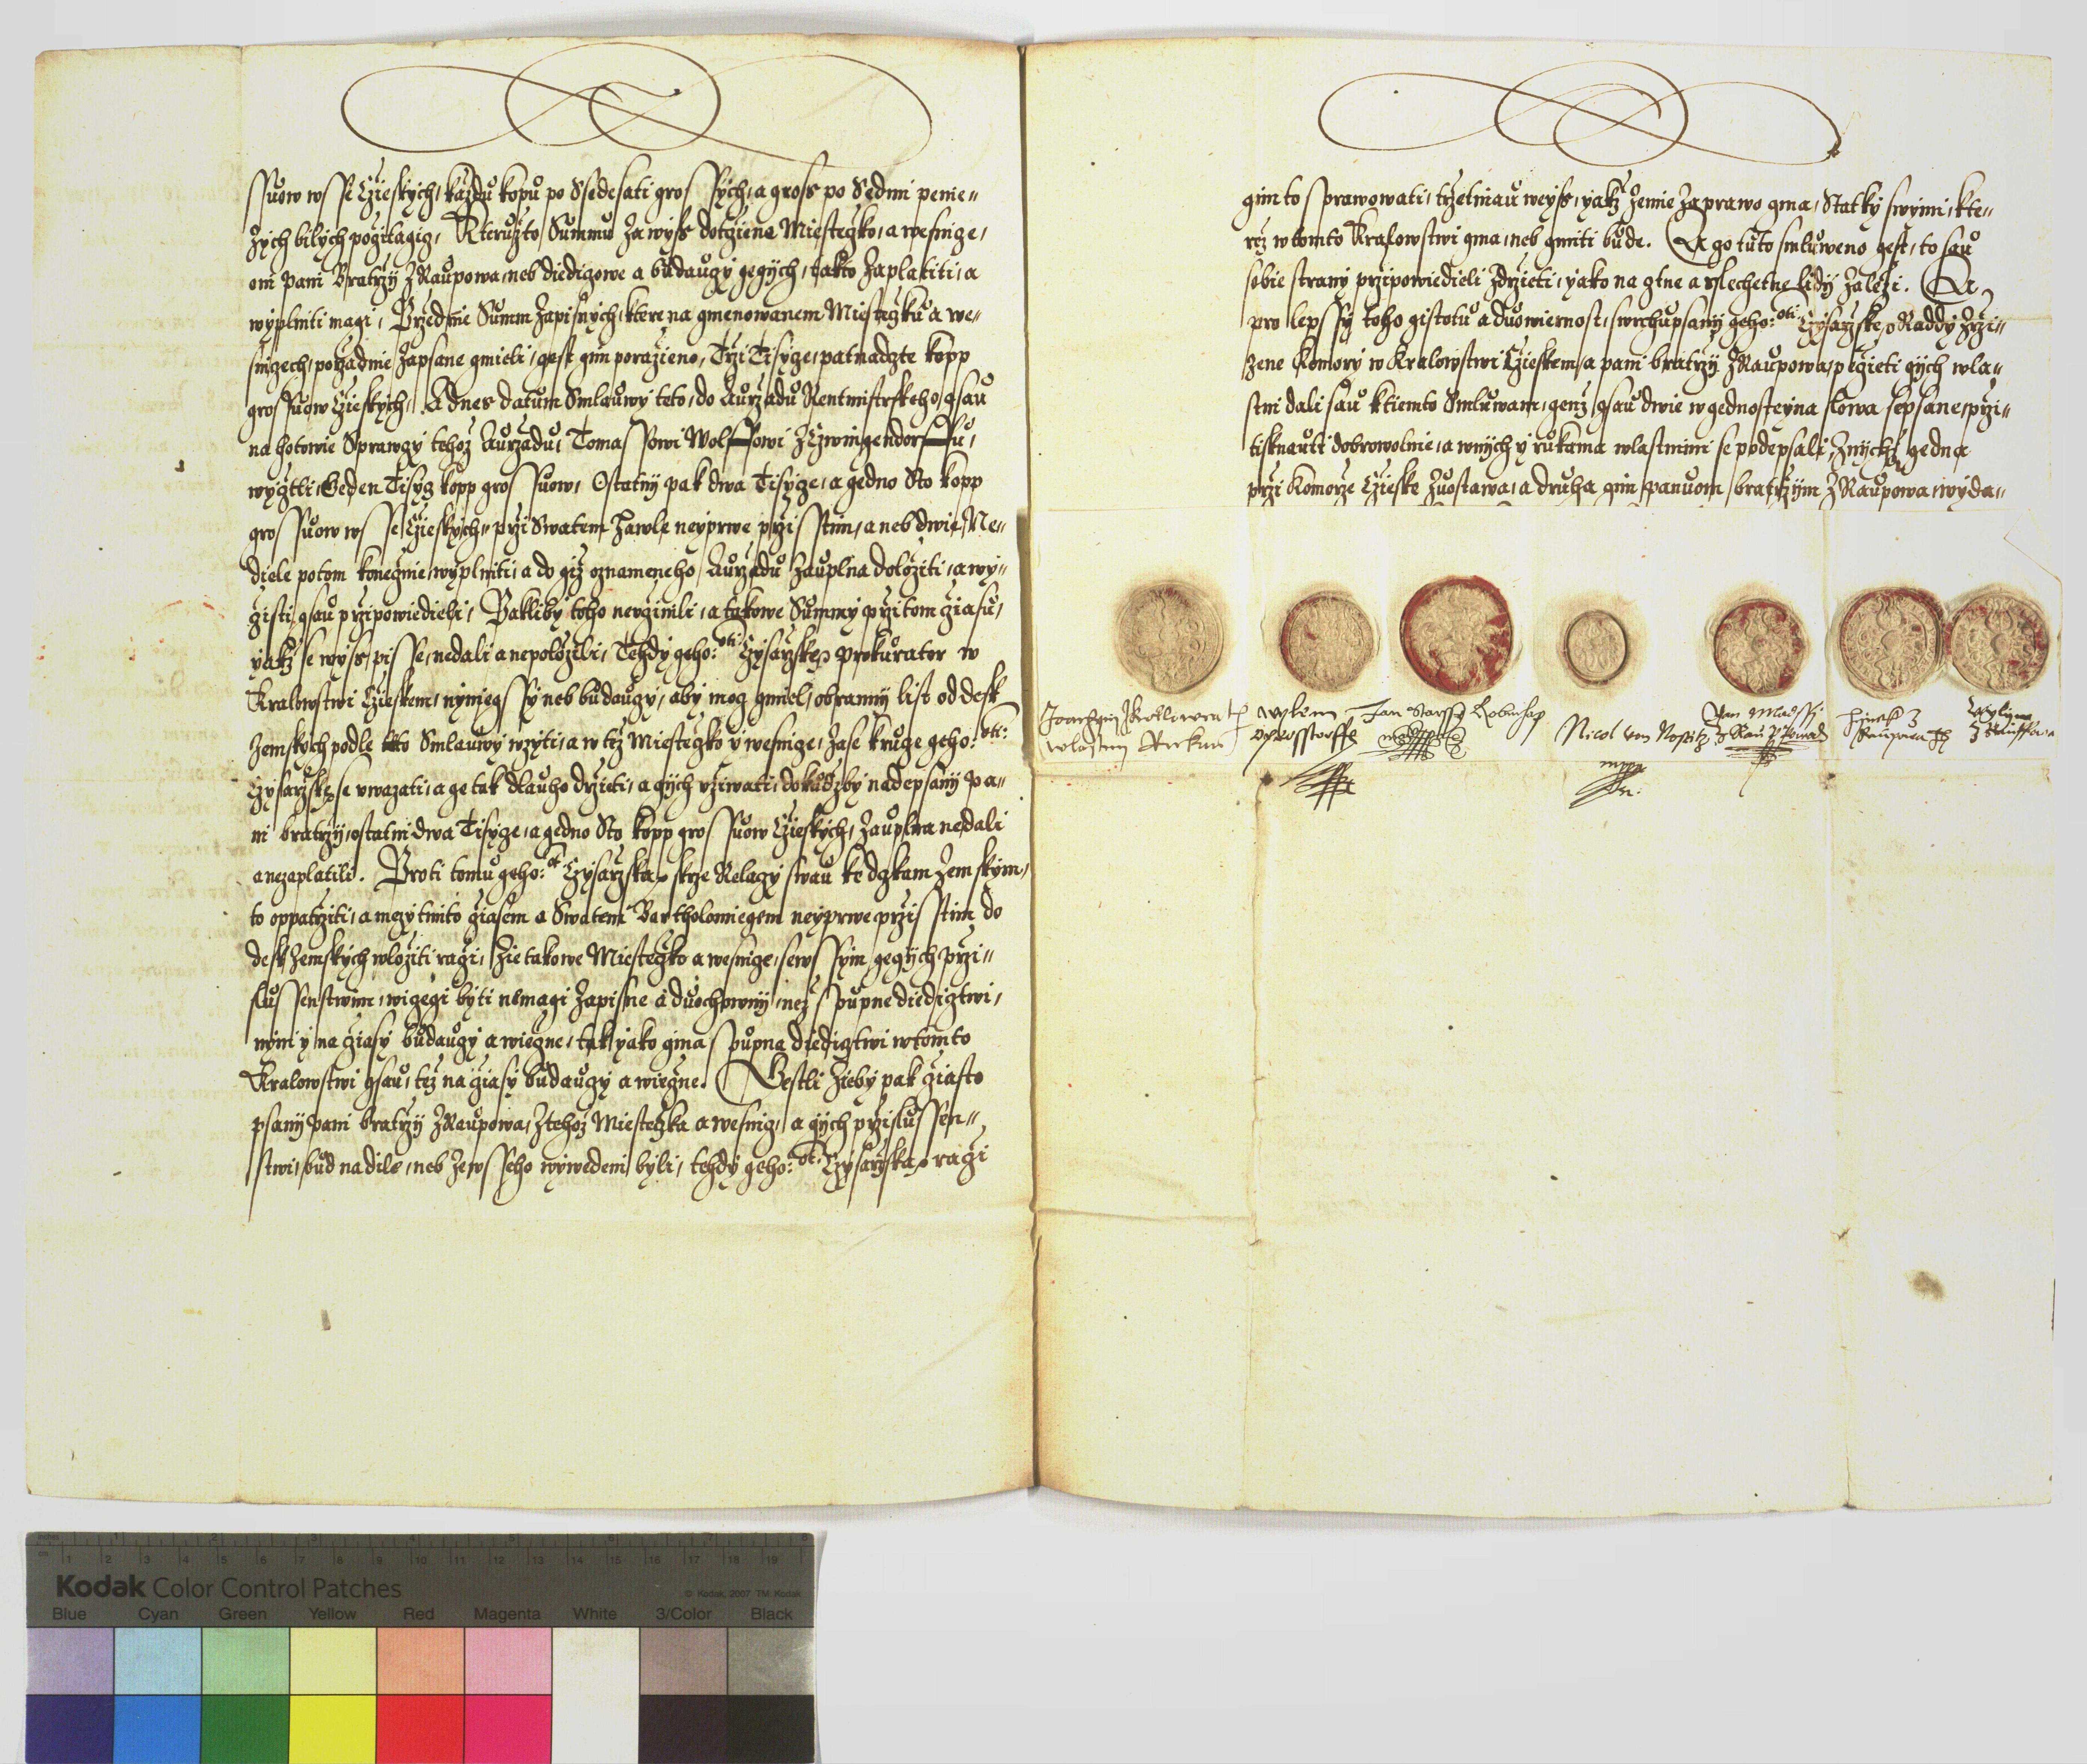 ssuow wsse Cžieskych, kazdu kopu po Ssedesati grossych, a gross po Sedmi penie„
zych bilych pocžitagicz, Kteruzto Summu za wyss dotcžene Miestecžko, a wesnicze,
oni pani Bratrzy z Raupowa, neb diediczowe a budauczy gegich, takto zaplatiti, a
wyplniti magi, Przednie Summ zapisnych, ktere na gmenowanem Miestecžku a we„
snicech, porzadnie zapsane gmieli, gest gim porazieno, Trzi Tisycze, patnadczte kopp
grossuow Cžieskych, A dnes datum Smlauwy teto, do Aurzadu Rentmistrskeho, gsau
na hotowie Sprawczy tehoz Aurzadu, Tomassowi Wolffowi z Czwingendorffu,
wycžtli, Geden Tisycz kopp grossuow, Ostatny pak dwa Tisycze, a gedno Sto kopp
grossuow wsse Cžieskych, przi Swatem Hawle neyprwe przisstim, aneb dwie Ne„
diele potom konecžnie wyplniti, a do giz oznameneho Aurzadu zauplna doloziti, a wy„
cžisti, gsau przipowiedieli, Pakliby toho neucžinili, a takowe Summy przi tom cžiasu,
yakz se wyss pisse, nedali a nepolozili, Tehdy geho: mti: Czysarzske prokurator w
Kralowstwi Cžieskem, nyniegssy neb budauczy, aby mocz gmiel, obranny list od desk
Zemskych podle teto Smlauwy wzyti, a w tez Miestecžko y wesnice, zase k ruce geho: mti:
Czysarzske se uwazati, a ge tak dlauho drzieti, a gich uziwati, dokudzby nadepsany pa„
ni bratrzy, ostatni dwa Tisycze, a gedno Sto kopp grossuow Cžieskych, zauplna nedali
a nezaplatili. Proti tomu geho: mt Czysarzska skrze Relaczy swau ke dczkam Zemskym,
to oppatrziti, a mezy timto cžiasem a Swatem Bartholomiegem neyprwe przisstim do
desk Zemskych wloziti racži, zie takowe Miestecžko a wesnice, sewssim gegich przi„
slussenstwim, wicegi byti nemagi zapisne a duochowny, nez spupne diedicztwi,
nyni y na cžiasy budauczy a wiecžne, tak yako gina spupna diedicztwi w tomto
Kralowstwi gsau, tez na cžiasy budauczy a wiecžne. Gestli zieby pak cžiasto
psany pani bratrzy z Raupowa, z tehoz Miestecžka a wesnicz, a gich przislussen„
stwi, bud na dile, neb ze wsseho wywedeni byli, tehdy geho: mt: Czysarzska racži
gim to sprawowati, trzetinau weyss, yakz Zemie za prawo gma, Statky swymi, kte„
rez w tomto Kralowstwi gma, neb gmiti bude. A czo tuto smluweno gest, to sau
sobie strany przipowiedieli zdrzieti, yako na ctne a slechetne lidy zalezi. A
pro lepssy toho gistotu a duowiernost, swrchupsany geho: mti Czysarzske Raddy zrzi„
zene Komory w Kralowstwi Cžieskem, a pani bratrzy z Raupowa, pecžieti gich wla„
stni dali sau k tiemto Smluwam, genz gsau dwie w gednosteyna slowa sepsane, przi„
tisknauti dobrowolnie, a w nych y rukama wlastnimi se podepsali, z nychz gedna
przi Komorze Cžieske zuostawa, a druha gim panuom bratrzym z Raupowa, wyda„
Joachym z Kollowrat
wlastny Ruku
Wylem
z Opprsstorffu
Jan starssy z Lobkowycz
Nicol von Nostitz
mppa
Jan z Raupowa
Hynek z
Raupowa
Wylym
z Rauppowa
Kodak Color Control Patches
© Kodak, 2007 TM: Kodak
Blue Cyan Green Yellow Red Magenta White 3/Color Black